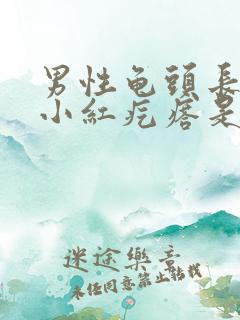 男性龟頭長
小紅疙瘩是
迷途樂章
未經同意禁止轉載